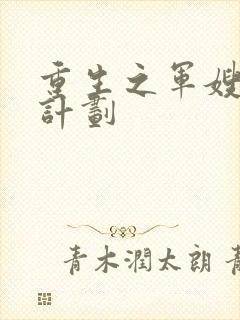 重生之軍嫂
計劃
青木潤太朗 青